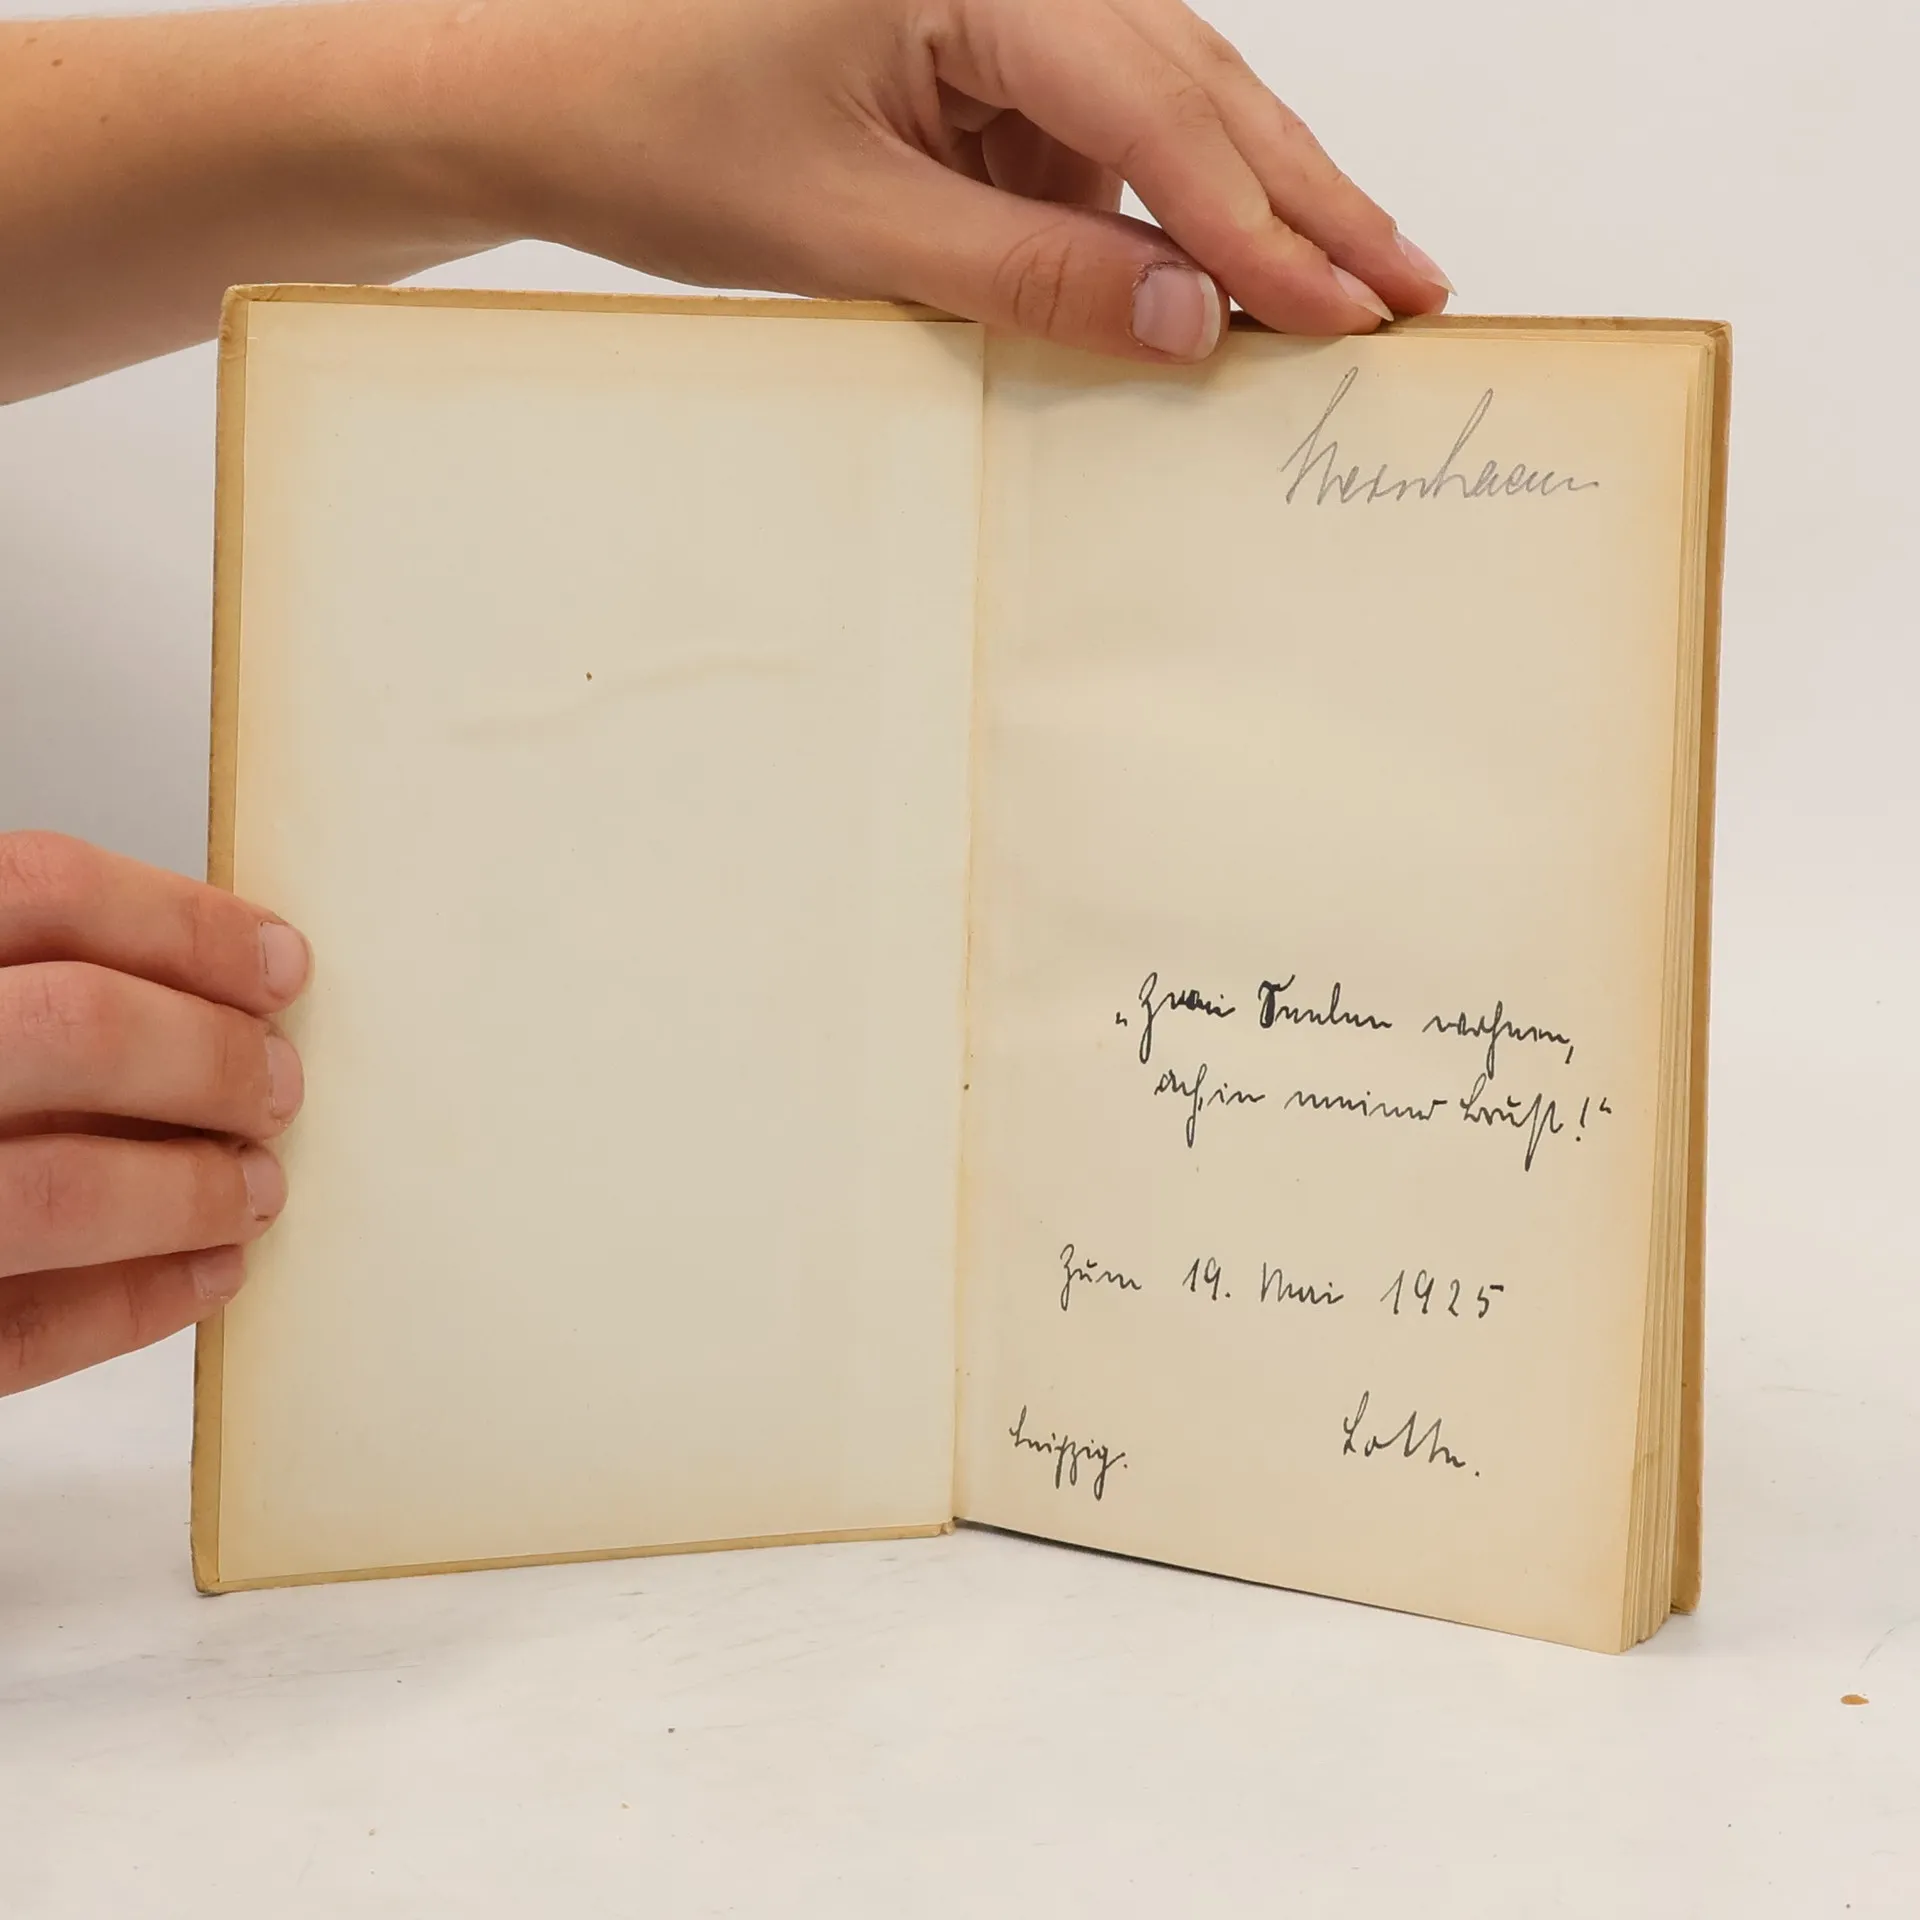 „Zwei Seelen wohnen,
ach, in meiner Brust!“
Zum 19. Mai 1925
Leipzig.
Lotte.